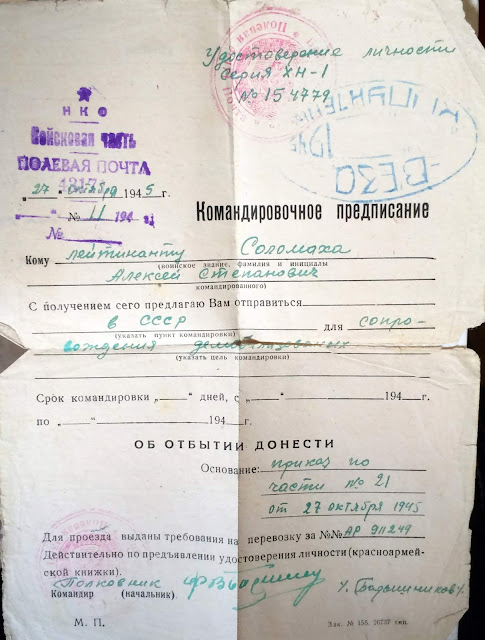 Удостоверение личности
Серия ХН-1
№ 154779
НКО
Войсковая часть
ПОЛЕВАЯ ПОЧТА
„27“ октября 1945 г.
№ 11 194
№
Командировочное предписание
Кому лейтинанту Соломаха
(воинское звание, фамилия и инициалы
Алексей Степанович
командированного)
С получением сего предлагаю Вам отправиться
в СССР для сопро-
(указать пункт командировки)
вождения
(указать цель командировки)
Срок командировки „ “ дней, с „ “ 194 г.
по „ “ 194 г.
ОБ ОТБЫТИИ ДОНЕСТИ
Основание: приказ по
части № 21
от 27 октября 1945
Для проезда выданы требования на перевозку за №№ АР 911249
Действительно по предъявлении удостоверения личности (красноармей-
ской книжки).
Полковник
Командир (начальник)
М. П.
Зак. № 155. 26737 тип.